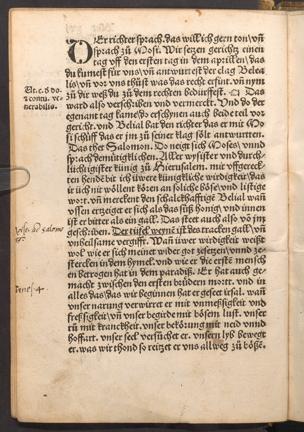 Er richter sprach. das will ich gern ton/ vñ
sprach zů Mosi. Wir setzen gericht eynen
tag vff den ersten tag in dem aprillen/ das
du kumest für vns/ vñ antwurtest der clag Belea
lis/ vñ vor vns thüst was das recht erfint. vñ nym
zů dir weß du zů dem rechten bedürffest. Das
ward also verschriben vnd vermerckt. Vnd do der
egenant tag kame/do erschynen auch beide teil vor
gericht. vnd Belial bat den richter das er mit Mo
si schüff das er jm zů seiner klag sölt antwurten.
Das thet Salomon. Do neigt sich Moses/ vnnd
sprach demütigklichen. Aller wysister vnd durch
lichtigister künig zů Hierusalem. mit vffgereck-
ten hend bit ich üwer künigkliche wirdigkeit/ das
ir üch nit wöllent kören an soliche böse/vnd listige
wort. vñ merckent den schalckhafftige Belial wañ
vssen erzeiget er sich als das süß honig/ vnd innen
ist er bitter als ein gall. Das stet auch also võ jm
geschriben. Der tüfel wenne ist des tracken gall/ vñ
vnheilsame vergifft. Wañ üwer wirdigkeit weißt
wol wie er sich meinet wider got zesetzen/vnnd ze-
stercken in dem hymel. vnd wie er die erste mensch
en betrogen hat in dem paradiß. Er hat auch ge-
macht zwischen den ersten brüdern mortt. vnd in
alles das/das wir beginnen hat er geseet irsal. wañ
vnser narung verwürt er mit vnmessigkeit vnd
freßigkeit/ vñ vnser begirde mit bösem lust. vnser
tů mit kranckheit. vnser bekörung mit neid vnnd
hoffart. vnser seel versůchet er. vnsern lyb beweget
er. was wir thond so reitzet er vns allweg zů böße.
Ut. c. ß do-
venerabilis.
Genes. 4.